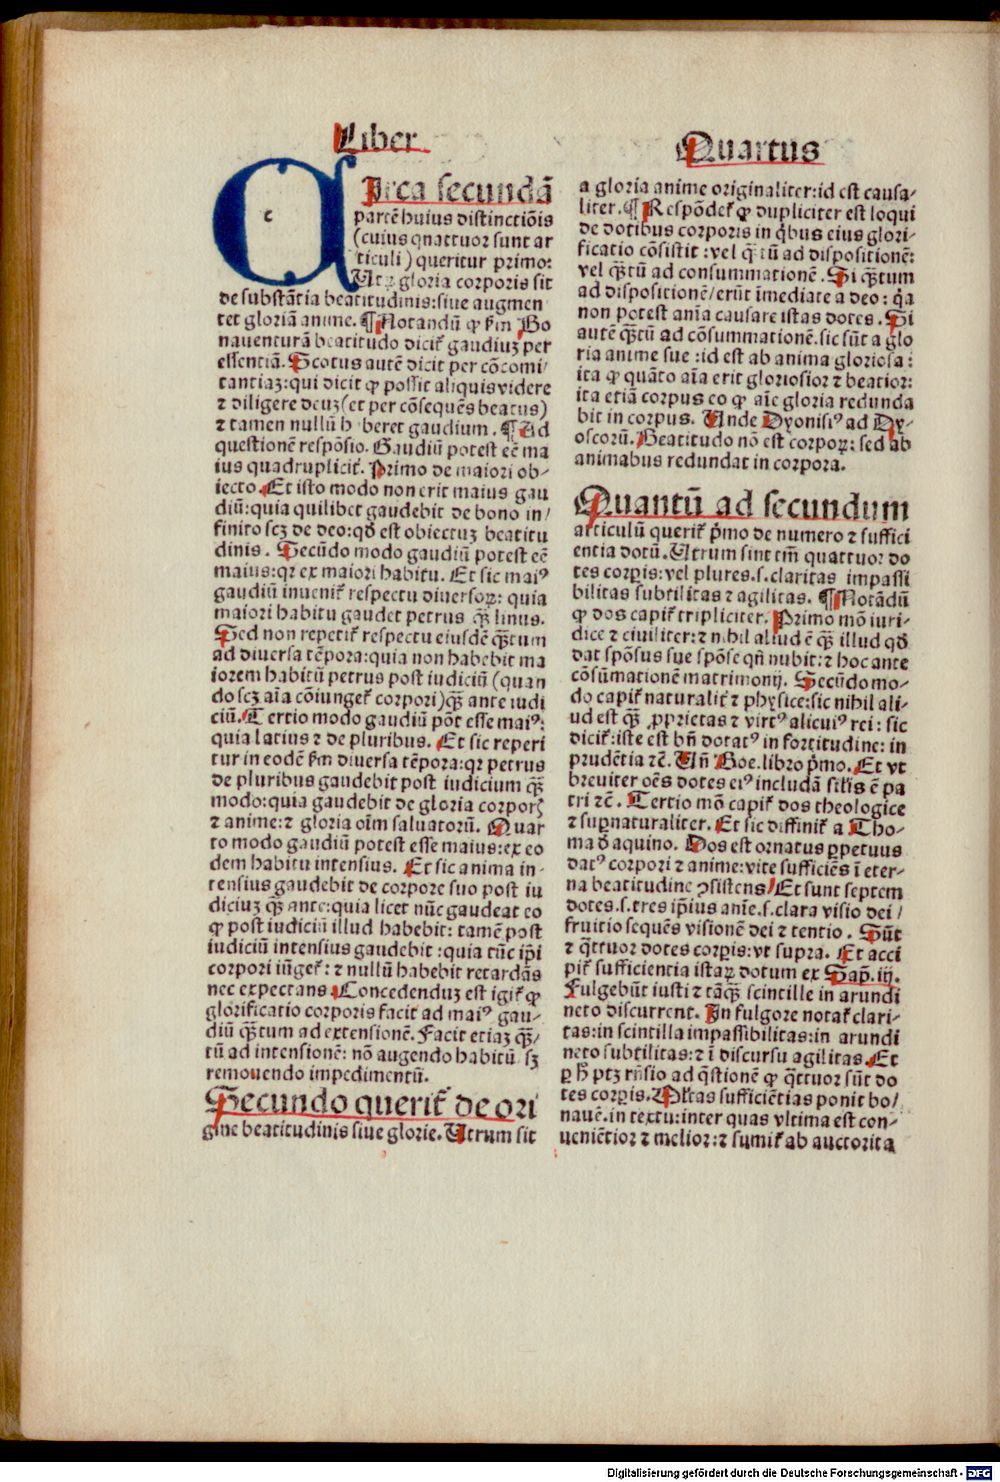 Liber
Quartus
Circa secundā
partē huius distinctiōis
(cuius quattuor sunt ar
ticuli) queritur primo:
Utꝝ gloria corporis sit
de substātia beatitudinis:siue augmen
tet gloriā anime. ¶Notandū ꝙ ẜm Bo
nauenturā beatitudo diciť gaudiuꝫ per
essentiā. Scotus autē dicit per cōcomi/
tantiaꝫ:qui dicit ꝙ possit aliquis videre
⁊ diligere deuꝫ(et per cōsequēs beatus)
⁊ tamen nullū h beret gaudium. ¶Ad
questionē respōsio. Gaudiū potest eē ma
ius quadrupliciť. Primo de maiori ob/
iecto. Et isto modo non erit maius gau
diū:quia quilibet gaudebit de bono in/
finito scꝫ de deo:qđ est obiectuꝫ beatitu
dinis. Secūdo modo gaudiū potest eē
maius:qꝛ ex maiori habitu. Et sic maiꝰ
gaudiū inueniť respectu diuersoꝝ: quia
maiori habitu gaudet petrus ꝗ̄ linus.
Sed non repetiť respectu eiusdē ꝗ̄tum
ad diuersa tēpora:quia non habebit ma
iorem habitū petrus post iudiciū (quan
do scꝫ aīa cōiungeť corpori)ꝗ̄ ante iudi
ciū. Tertio modo gaudiū pōt esse maiꝰ:
quia latius ⁊ de pluribus. Et sic reperi
tur in eodē ẜm diuersa tēpora:qꝛ petrus
de pluribus gaudebit post iudicium ꝗ̄
modo:quia gaudebit de gloria corporꝭ
⁊ anime:⁊ gloria oīm saluatorū. Quar
to modo gaudiū potest esse maius:ex eo
dem habitu intensius. Et sic anima in-
tensius gaudebit de corpore suo post iu
diciuꝫ ꝗ̄ ante:quia licet nūc gaudeat eo
ꝙ post iudiciū illud habebit: tamē post
iudiciū intensius gaudebit :quia tūc ip̄i
corpori iūgeť: ⁊ nullū habebit retardās
nec expectans. Concedenduꝫ est igiť ꝙ
glorificatio corporis facit ad maiꝰ gau-
diū ꝗ̄tum ad extensionē. Facit etiaꝫ ꝗ̄/
tū ad intensionē: nō augendo habitū sꝫ
remouendo impedimentū.
Secundo queriť de ori
gine beatitudinis siue glorie. Utrum sit
a gloria anime originaliter:id est causa-
liter. ¶Respōdeť ꝙ dupliciter est loqui
de dotibus corporis in q̄bus eius glori-
ficatio cōsistit :vel ꝗ̄tū ad dispositionē:
vel ꝗ̄tū ad consummationē. Si ꝗ̄tum
ad dispositionē/erūt īmediate a deo: q̄a
non potest anīa causare istas dotes. Si
autē ꝗ̄tū ad cōsummationē.sic sūt a glo
ria anime sue :id est ab anima gloriosa:
ita ꝙ quāto aīa erit gloriosior ⁊ beatior:
ita etiā corpus eo ꝙ aīe gloria redunda
bit in corpus. Unde Dyonisiꝰ ad Dy-
oscorū. Beatitudo nō est corpoꝝ: sed ab
animabus redundat in corpora.
Quantū ad secundum
articulū queriť p̄mo de numero ⁊ suffici
entia dotū. Utrum sint tm̄ quattuor do
tes corꝑis:vel plures.s.claritas impassi
bilitas subtilitas ⁊ agilitas. ¶Notādū
ꝙ dos capiť tripliciter. Primo mō iuri-
dice ⁊ ciuiliter:⁊ nihil aliud ē ꝗ̄ illud qđ
dat spōsus sue spōse qn̄ nubit:⁊ hoc ante
cōsūmationē matrimonij. Secūdo mo-
do capiť naturaliť ⁊ physice:sic nihil ali-
ud est ꝗ̄ ꝓprietas ⁊ virtꝰ alicuiꝰ rei: sic
diciť:iste est bn̄ dotatꝰ in fortitudine: in
prudētia ⁊ē. Uñ Boe.libro p̄mo. Et vt
breuiter oēs dotes eiꝰ includā siľis ē pa
tri ⁊ē. Tertio mō capiť dos theologice
⁊ suꝑnaturaliter. Et sic diffiniť a Tho-
ma đ aquino. Dos est ornatus ꝑpetuus
datꝰ corpori ⁊ anime:vite sufficiēs ī eter-
na beatitudine ꝯsistens/Et sunt septem
dotes.s.tres ip̄ius anīe.s.clara visio dei/
fruitio sequēs visionē dei ⁊ tentio. Sūt
⁊ q̄ttuor dotes corꝑis:vt supra. Et acci
piť sufficientia istaꝝ dotum ex Sap̄.iij.
Fulgebūt iusti ⁊ tāꝗ̄ scintille in arundi
neto discurrent. In fulgore notať clari-
tas:in scintilla impassibilitas:in arundi
neto subtilitas:⁊ ī discursu agilitas. Et
ꝑ ħ ptꝫ rn̄sio ad q̄stionē ꝙ q̄ttuor sūt do
tes corꝑis. sufficiētias ponit bo/
nauē.in textu:inter quas vltima est con-
ueniētior ⁊ melior:⁊ sumiť ab auctorita
Digitalisierung gefördert durch die Deutsche Forschungsgemeinschaft - DFG